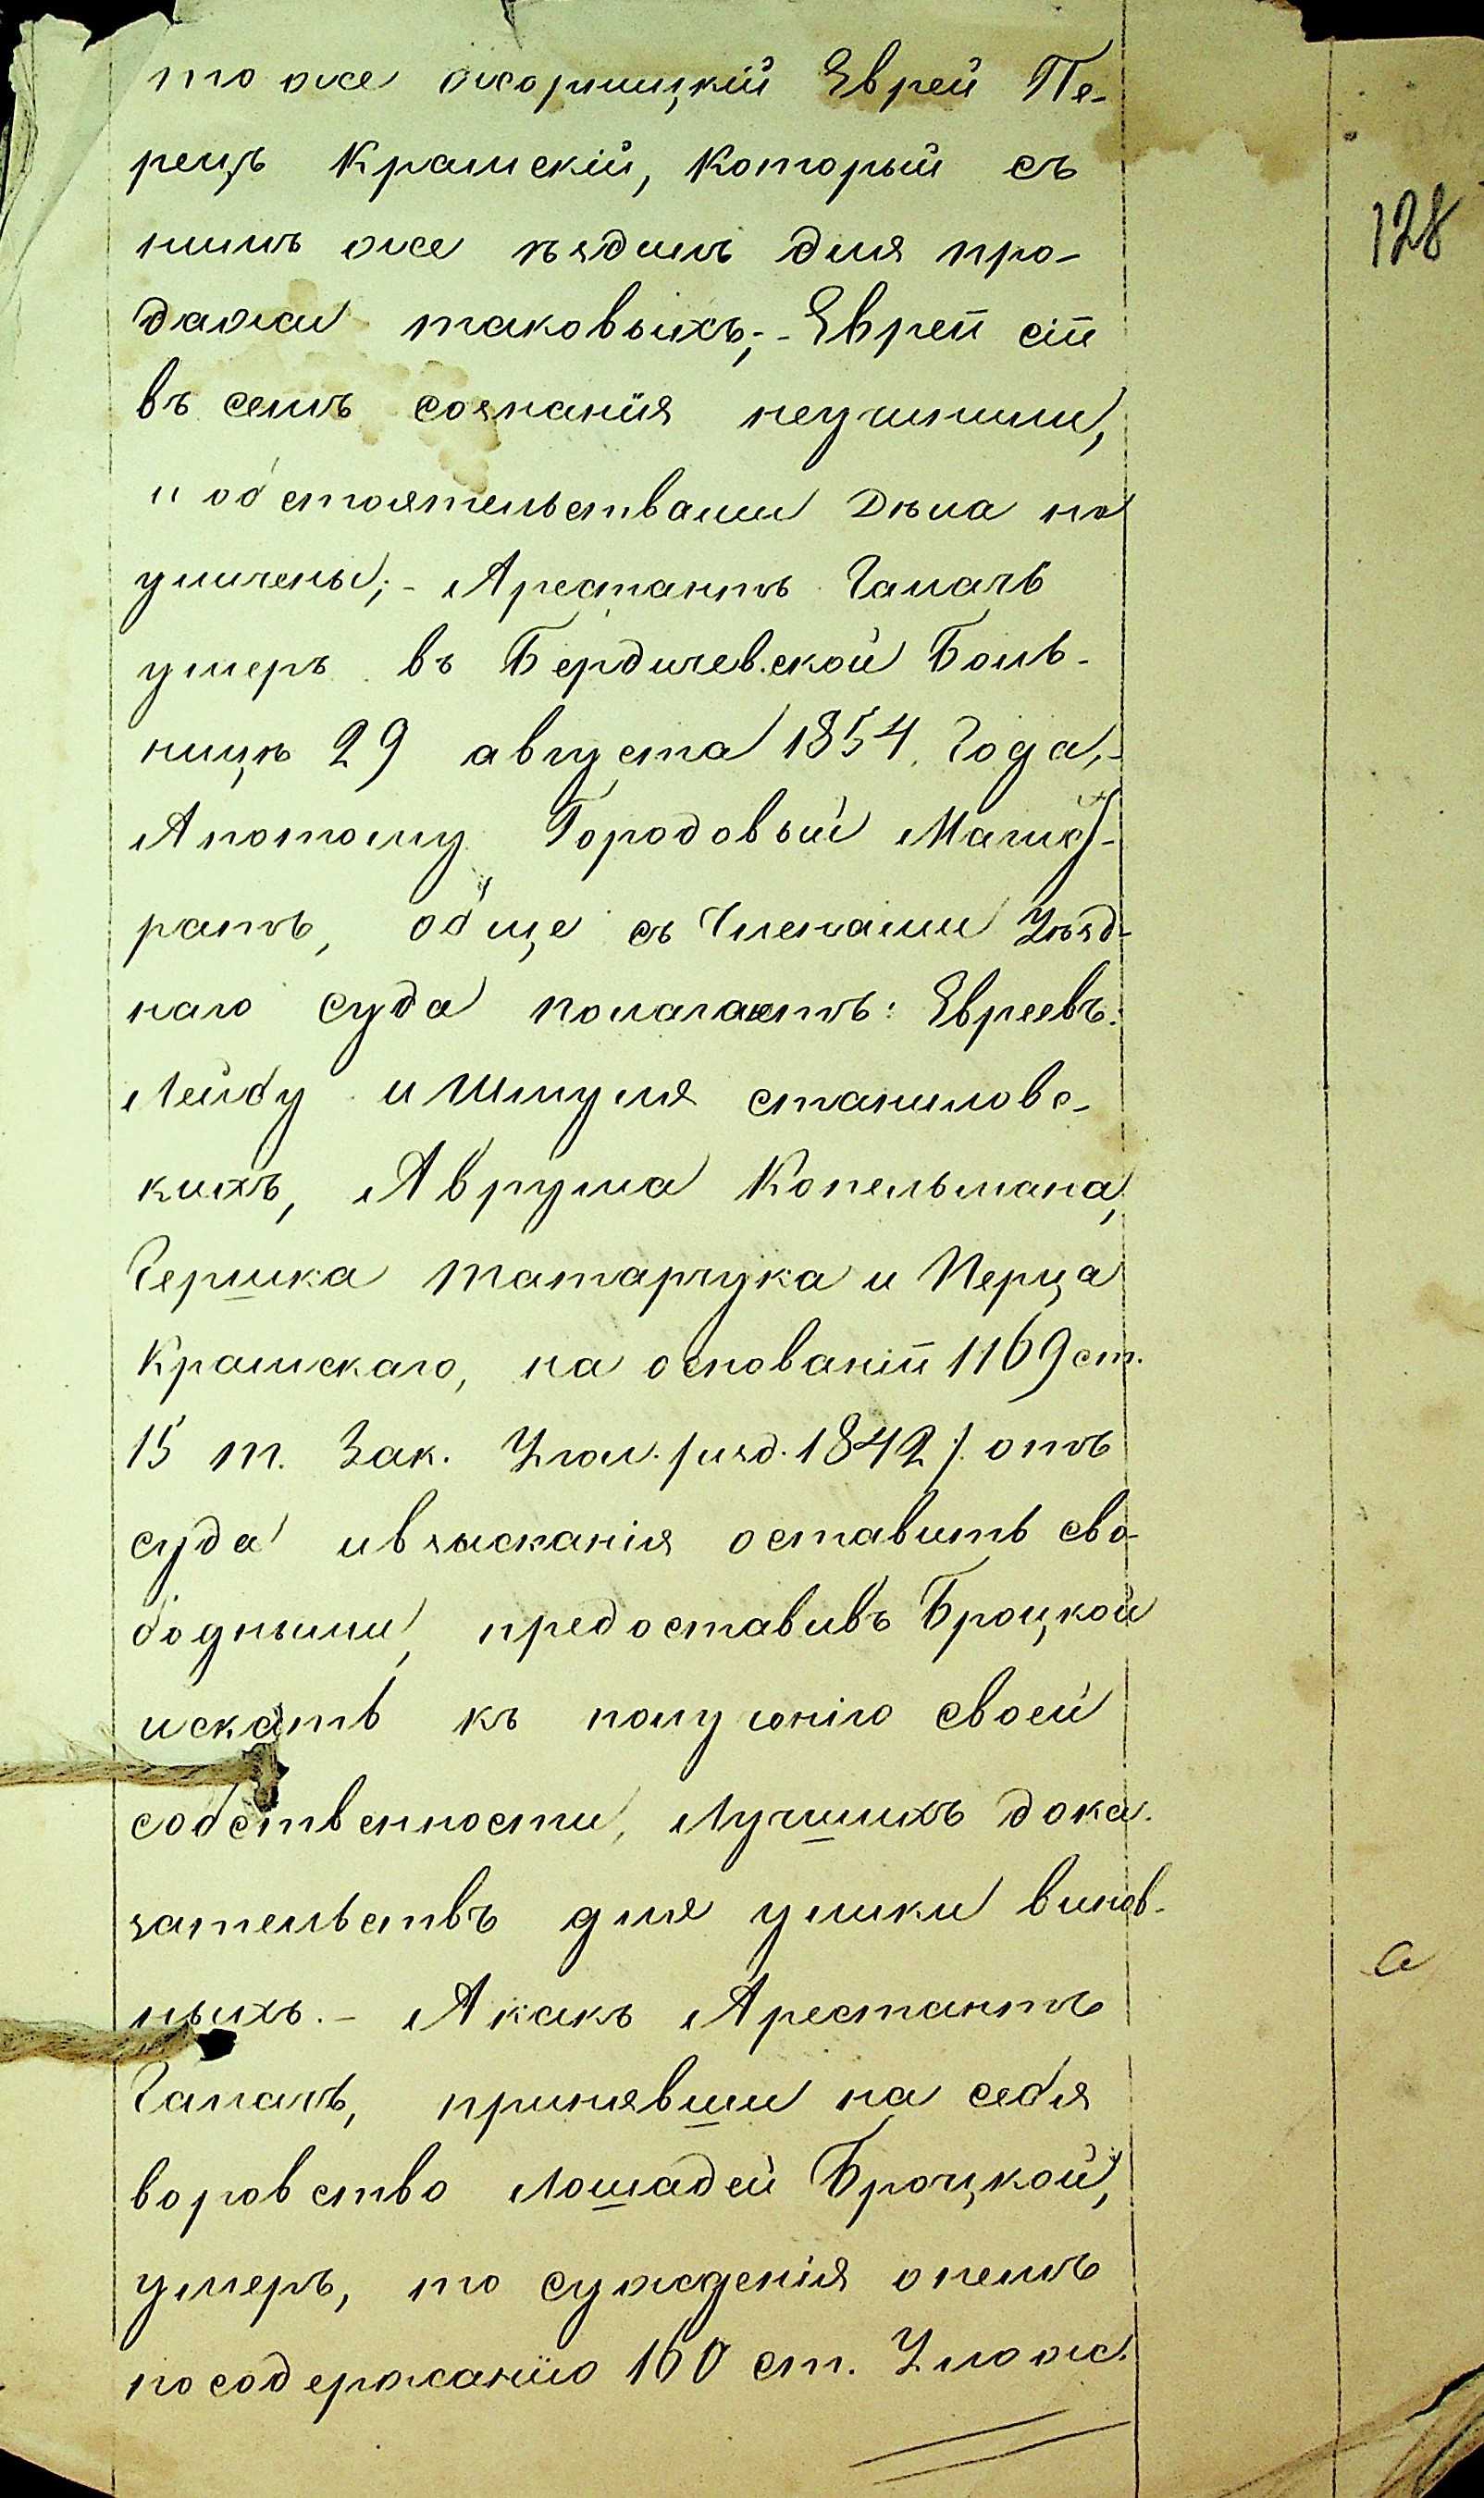 то же жорницкій Еврей Пе-
рецъ Крамскій, который съ
128
нимъ же ѣздилъ для про-
дажи таковыхъ;- Евреи сіи
въ семъ сознанія неучинили,
и обстоятельствами дѣла не
уличены;- Арестантъ Галагъ
умеръ въ Бердичевской Боль-
ницѣ 29 августа 1854. Года,-
Апотому Городовый Магист-
ратъ, обще съ Членами Уѣзд-
наго суда полагаетъ: Евреевъ:
Лейбу и Шмуля станиловс-
кихъ, Аврума Копельмана,
Гершка татарчука и Перца
Крамскаго, на основаніи 1169 ст.
15 т. Зак. Угол. /изд. 1842/. отъ
суда ивзысканія оставить сво-
бодными, предоставивъ Броцкой
искать къ полученію своей
собственности, Лучшихъ дока-
зательствъ для улики винов-
а
ныхъ.- Акакъ Арестантъ
Галагъ, принявши на себя
воровство Лошадей Броцкой,
умеръ, то сужденія онемъ
посодержанію 160 ст. Улож.